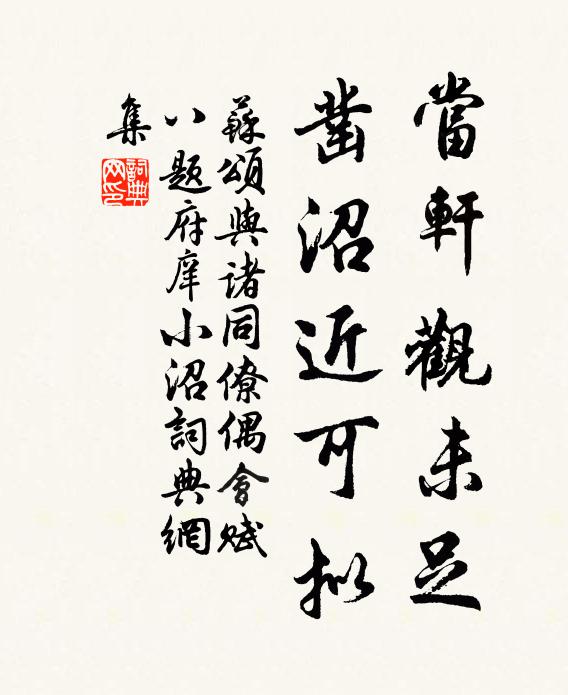 當軒觀未足
鑿沼近可拟
蘇頌與诸同僚偶會赋
八题府庠小沼詞典網
集
詞典
网印